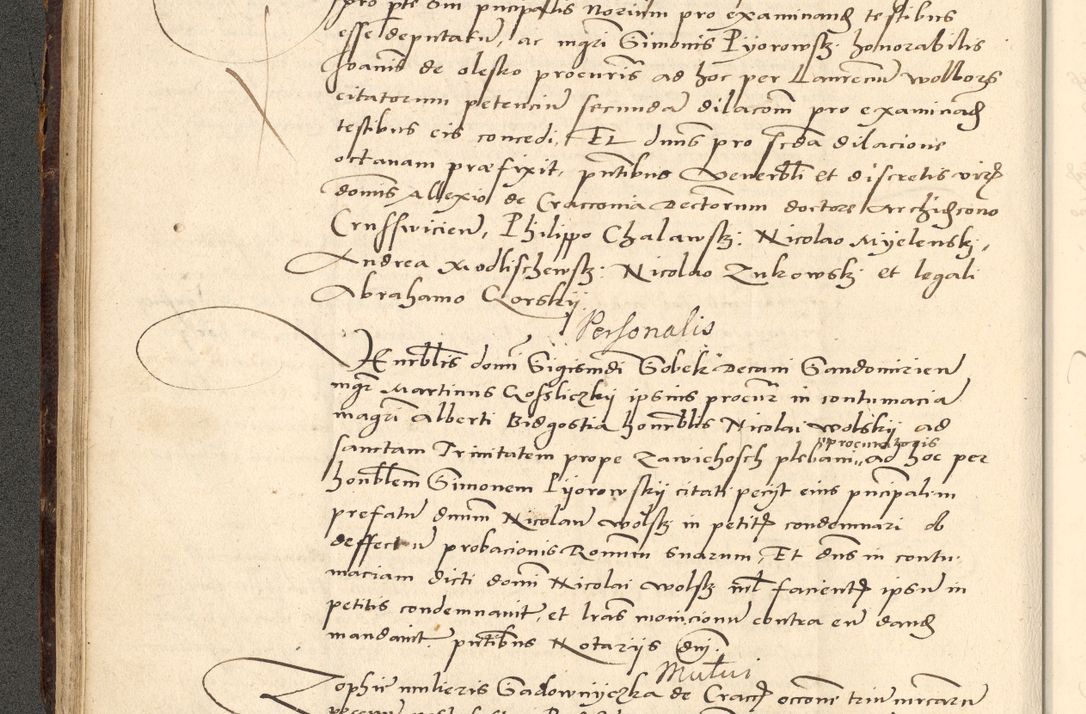 pro pte Sui principalis Noviim pro examinand testibus
esse deputatū, ac mgri Simonis Pijorowskj honorabilis
Joānis de olesko procuris ad hoc per Laurecīu wolborz
citatorum petenciū secundā dilacoīm pro examinād
testibus eis concedi, Et dūns pro scdā dilacione
octavam præfixit, pntibus Venerbli et discretis viris
domīs Allexio de Cracconia Decretorum doctore Archidcono
Crusswicien, Philippo Chalawskj: Nicolao Myelenskj,
Andrea Modlischewskj: Nicolao Zukowskj et legali
Abrahamo Gorskij
Personalis
Venerblis domī Sigismūdi Sobek Decani Sandomirien
mgr Martinus Gossliczkij ipsius procur in contumaciā
magri Alberti Bidgostia honorblis Nicolai Wolskij ad
sanctam Trinitatem prope Zawichosch plebani, procuratoris ad hoc per
honblem Simonem Pijorowskij citati pecijt eius principalem
prefatū dnum Nicolaū wolskj in petitis condemnari ob
deffectū probacionis Rōnum suarum, Et dns in contu
maciam dicti domī Nicolai wolskj nil facientis ipsū in
petitis condemnavit, et lrās monicionū contra eū dand
mandavit. pntibus Notarijs dnj.
Mutui
Zophie mulieris Sadownyczka de Cracc occone triū mrcarū